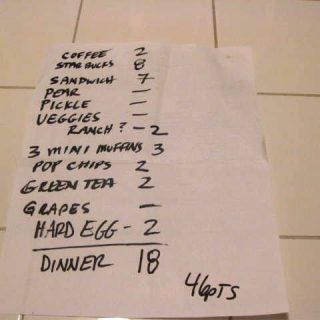 COFFEE 2
STARBUCKS 8
SANDWICH 7
PEAR —
PICKLE —
VEGGIES —
RANCH? - 2
3 MINI MUFFINS 3
POP CHIPS 2
GREEN TEA 2
GRAPES —
HARD EGG - 2
DINNER 18
46PTS